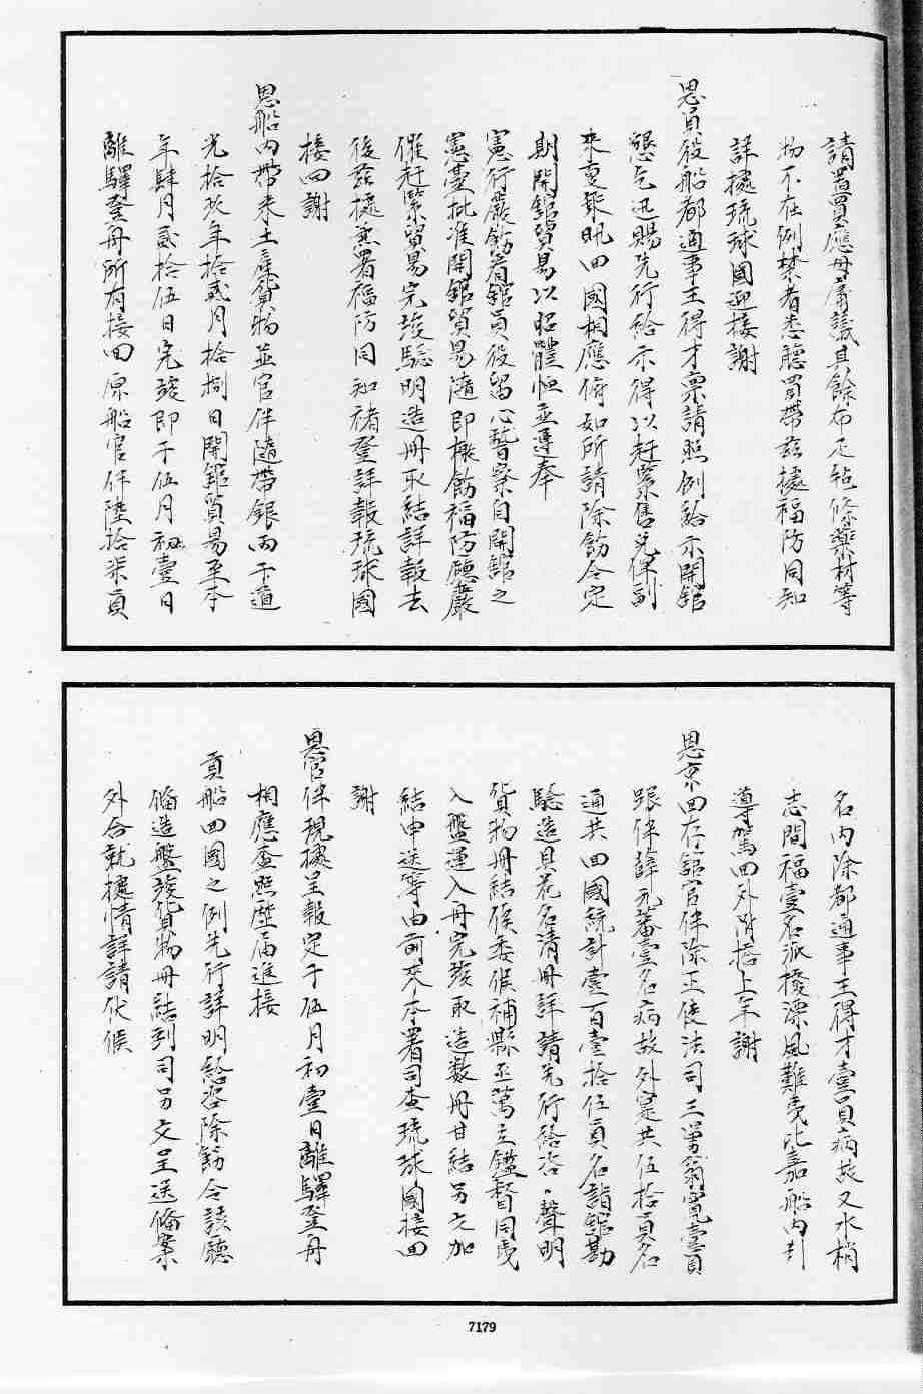 請置買應毋庸議其餘布疋毡修藥材等
物不在例禁者悉聽買帶茲據福防同知
詳據琉球國迎接謝
恩員役船都通事王得才稟請照例給示開館
懇乞迅賜先行給示得以赶緊售兌俾副
來夏報帆回國相應俯如所請除飭令定
期開館貿易以昭體恤並遵奉
憲行嚴飭看館員役留心督察自開館之
憲臺批准開館貿易隨即檄飭福防廳嚴
催赶緊貿易完竣驗明造冊取結詳報去
後茲據兼署福防同知褚登詳報琉球國
接回謝
恩船內帶來土產貨物並官伴隨帶銀兩于道
光拾玖年拾貳月拾捌日開館貿易至本
年肆月貳拾伍日完竣即于伍月初壹日
離驛登舟所有接回原船官伴陸拾柒員
名內除都通事王得才壹員病故又水梢
志間福壹名派撥漂風難夷比嘉船內引
導駕回外附搭上年謝
恩京回在館官伴除正使法司三 翁寬壹員
跟伴薛元蕃壹名病故外寔共伍拾員名
通共回國統計壹百壹拾伍員名詣館勘
驗造具花名清冊詳請先行給咨、聲明
貨物冊結俟委候補縣丞萬立鑑督同夷
人盤運入舟完竣取造數冊甘結另文加
結申送等由前來本署司查琉球國接回
謝
恩官伴現據呈報定于伍月初壹日離驛登舟
相應查照歷届進接
貢船回國之例先行詳明給咨除飭令該廳
備造盤竣貨物冊結到司另文呈送備案
外合就據情詳請伏候
7179